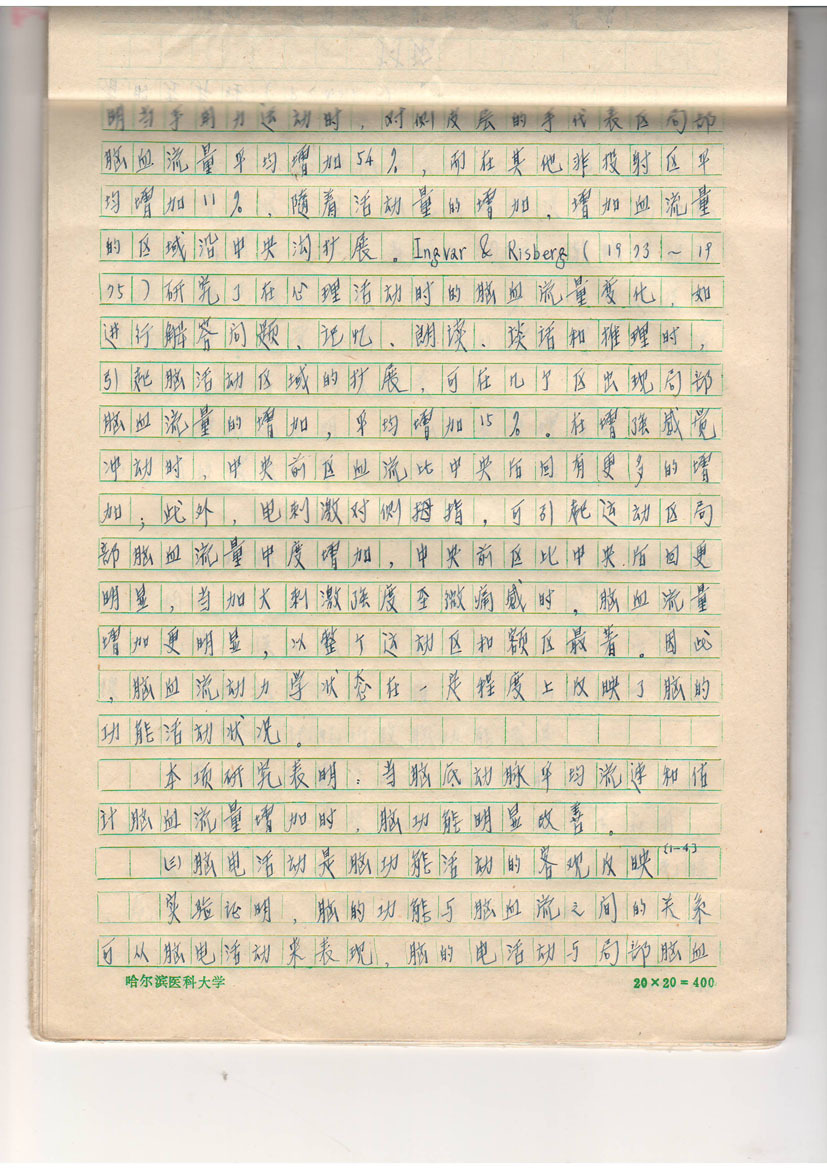 明当手用力运动时，对侧皮层的手代表区局部
脑血流量平均增加54%，而在其他非投射区平
均增加11%、随着活动量的增加，增加血流量
的区域沿中央沟扩展。Ingvar & Risberg（1973～19
75）研究了在心理活动时的脑血流量变化，如
进行解答问题、记忆、朗读、谈话和推理时，
引起脑活动区域的扩展，可在几个区出现局部
脑血流量的增加，平均增加15%。在增强感觉
冲动时，中央前区血流比中央后回有更多的增
加；此外，电刺激对侧拇指，可引起运动区局
部脑血流量中度增加，中央前区比中央后回更
明显，当加大刺激强度至微痛感时，脑血流量
增加更明显，以整个运动区和额区最著。因此
，脑血流动力学状态在一定程度上反映了脑的
功能活动状况。
本项研究表明：当脑底动脉平均流速和估
计脑血流量增加时，脑功能明显改善。
㈢脑电活动是脑功能活动的客观反映[1-4]
实验证明，脑的功能与脑血流之间的关系
可从脑电活动来表现，脑的电活动与局部脑血
哈尔滨医科大学 20×20=400